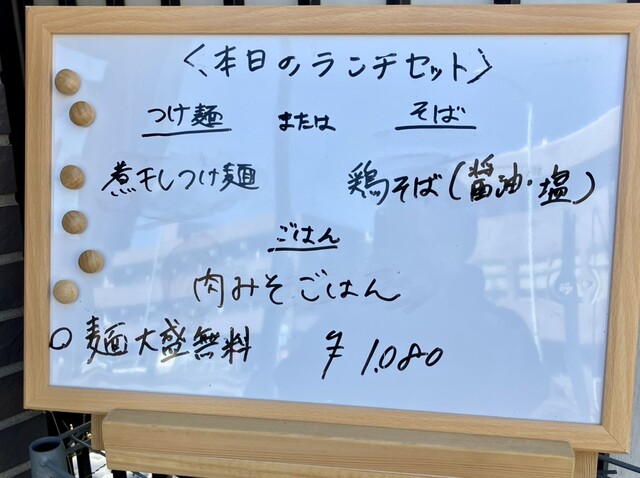 〈本日のランチセット〉
つけ麺 または そば
煮干しつけ麺 鶏そば(醤油・塩)
ごはん
肉みそごはん
○麺大盛無料 ¥1,080